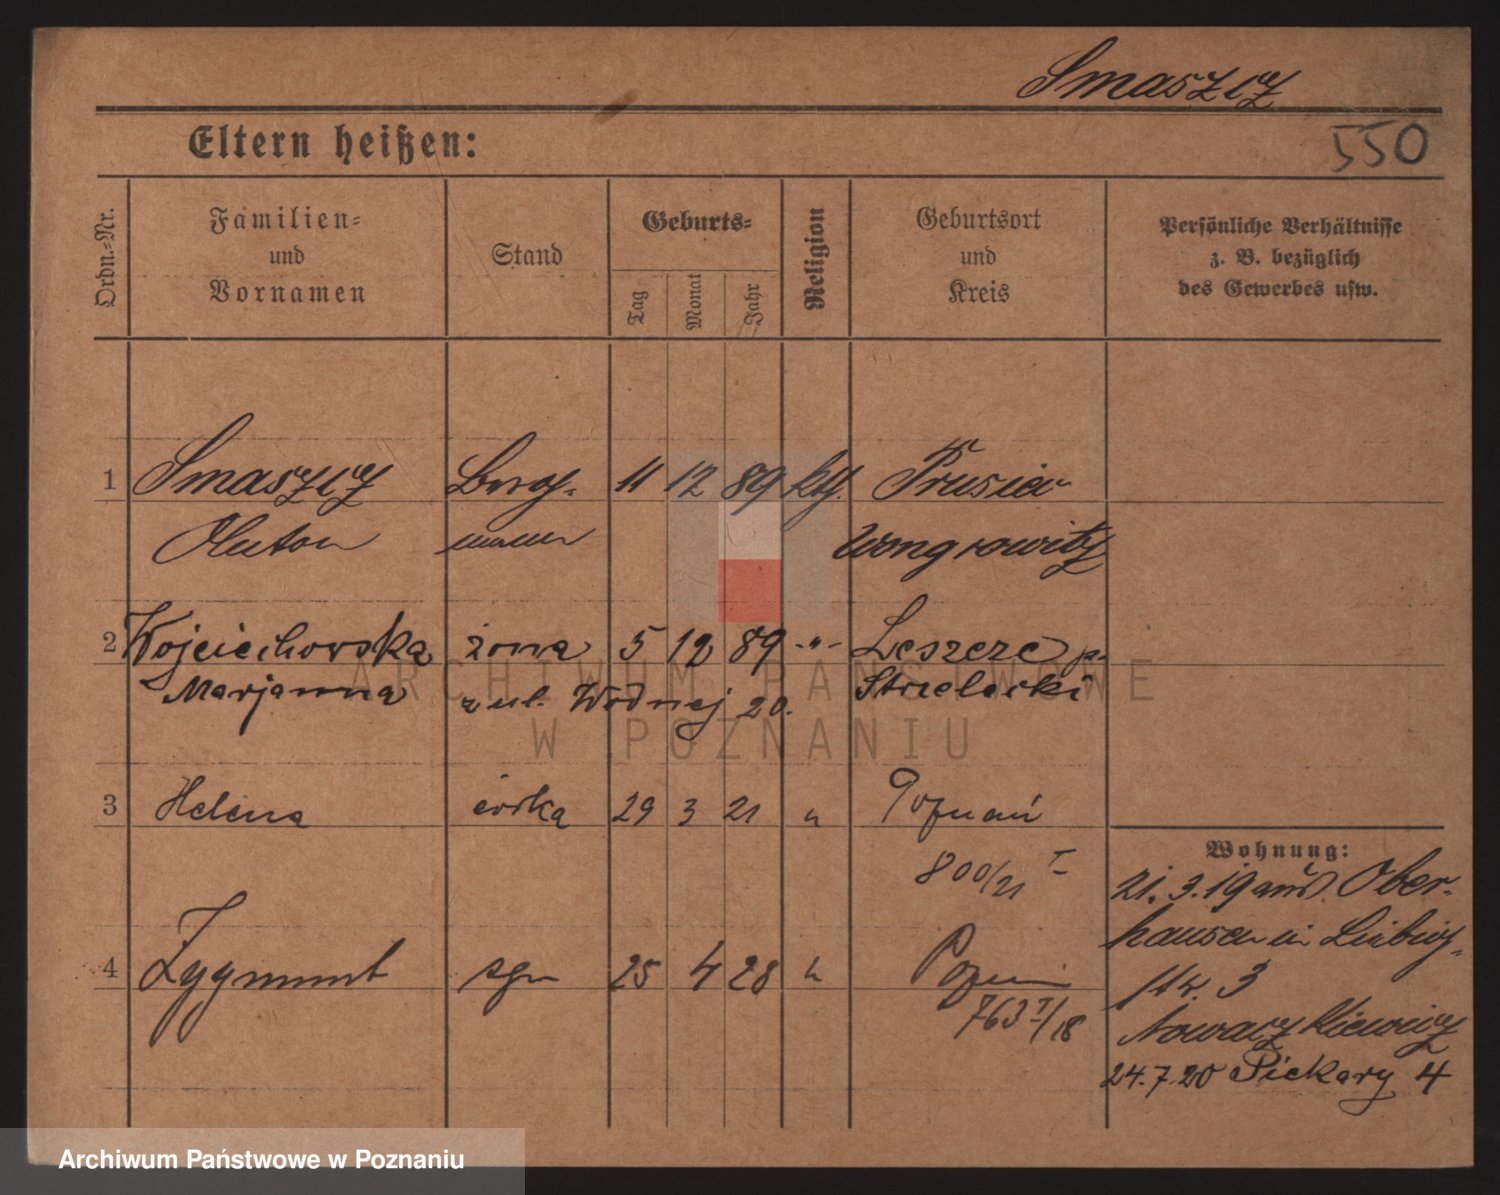 Smaszcz
550
Eltern heißen:
Ordn.-Nr.
Familien-
und
Vornamen
Stand
Geburts-
Tag
Monat
Jahr
Religion
Geburtsort
und
Kreis
Persönliche Verhältnisse
z. B. bezüglich
des Gewerbes usw.
1 Smaszcz Berg- 11 12 89 kth. Prusiec
Anton mann Wongrowitz
2 Wojciechowska żona 5 12 89 -"- Leszcze p.
Marjanna z ul. Wodnej 20. Strzelecki
3 Helena córka 29 3 21 " Poznań
800/21 I
4 Zygmunt syn 25 4 28 " Poznań
763 I/18
Wohnung:
21.3.19 aus Ober-
hausen in Liebig-
str. 3
Nowaczkiewicz
24.7.20 Piekary 4
ARCHIWUM PAŃSTWOWE
W POZNANIU
Archiwum Państwowe w Poznaniu